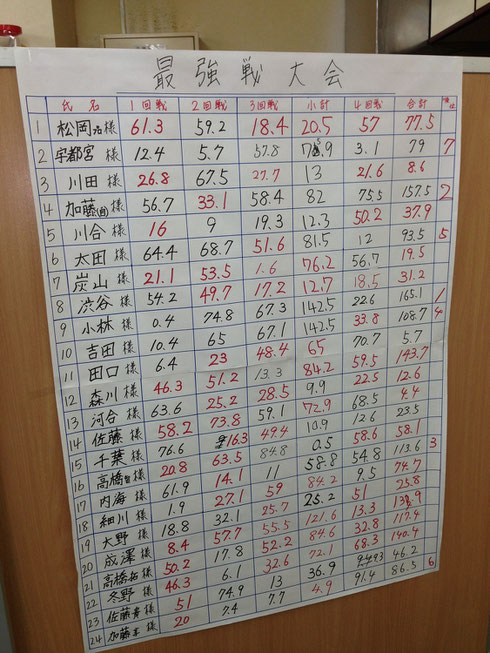 最強戦大会
氏名 1回戦 2回戦 3回戦 小計 4回戦 合計 順位
1 松岡 様 61.3 59.2 18.4 20.5 57 77.5
2 宇都宮 様 12.4 5.7 57.8 3.1 79 7
3 川田 様 26.8 67.5 27.7 13 21.6 8.6
4 加藤 様 56.7 33.1 58.4 82 75.5 157.5 2
5 川合 様 16 9 19.3 12.3 50.2 37.9
6 太田 様 64.4 68.7 51.6 81.5 12 93.5 5
7 炭山 様 21.1 53.5 1.6 76.2 56.7 19.5
8 渋谷 様 54.2 49.7 17.2 12.7 18.5 31.2
9 小林 様 0.4 74.8 67.3 142.5 22.6 165.1 1
10 吉田 様 10.4 65 67.1 142.5 33.8 108.7 4
11 田口 様 6.4 23 48.4 65 70.7 5.7
12 森川 様 46.3 51.2 13.3 84.2 59.5 143.7
13 河合 様 63.6 25.2 28.5 9.9 22.5 12.6
14 佐藤 様 58.2 73.8 59.1 72.9 68.5 4.4
15 千葉 様 76.6 16.3 49.4 10.9 12.6 23.5
16 高橋 様 20.8 63.5 84.8 0.5 58.6 58.1
17 内海 様 61.9 14.1 11 58.8 54.8 113.6 3
18 細川 様 1.9 27.1 59 84.2 9.5 74.7
19 大野 様 18.8 32.1 25.7 25.2 51 25.8
20 成澤 様 8.4 57.7 55.5 121.6 13.3
21 高橋 様 50.2 17.8 52.2 84.6 32.8 117.4
22 冬野 様 46.3 6.1 32.6 72.1 68.3 140.4
23 佐藤 様 51 74.9 13 36.9 46.2
24 加藤 様 20 7.4 7.7 4.9 91.4 86.5 6